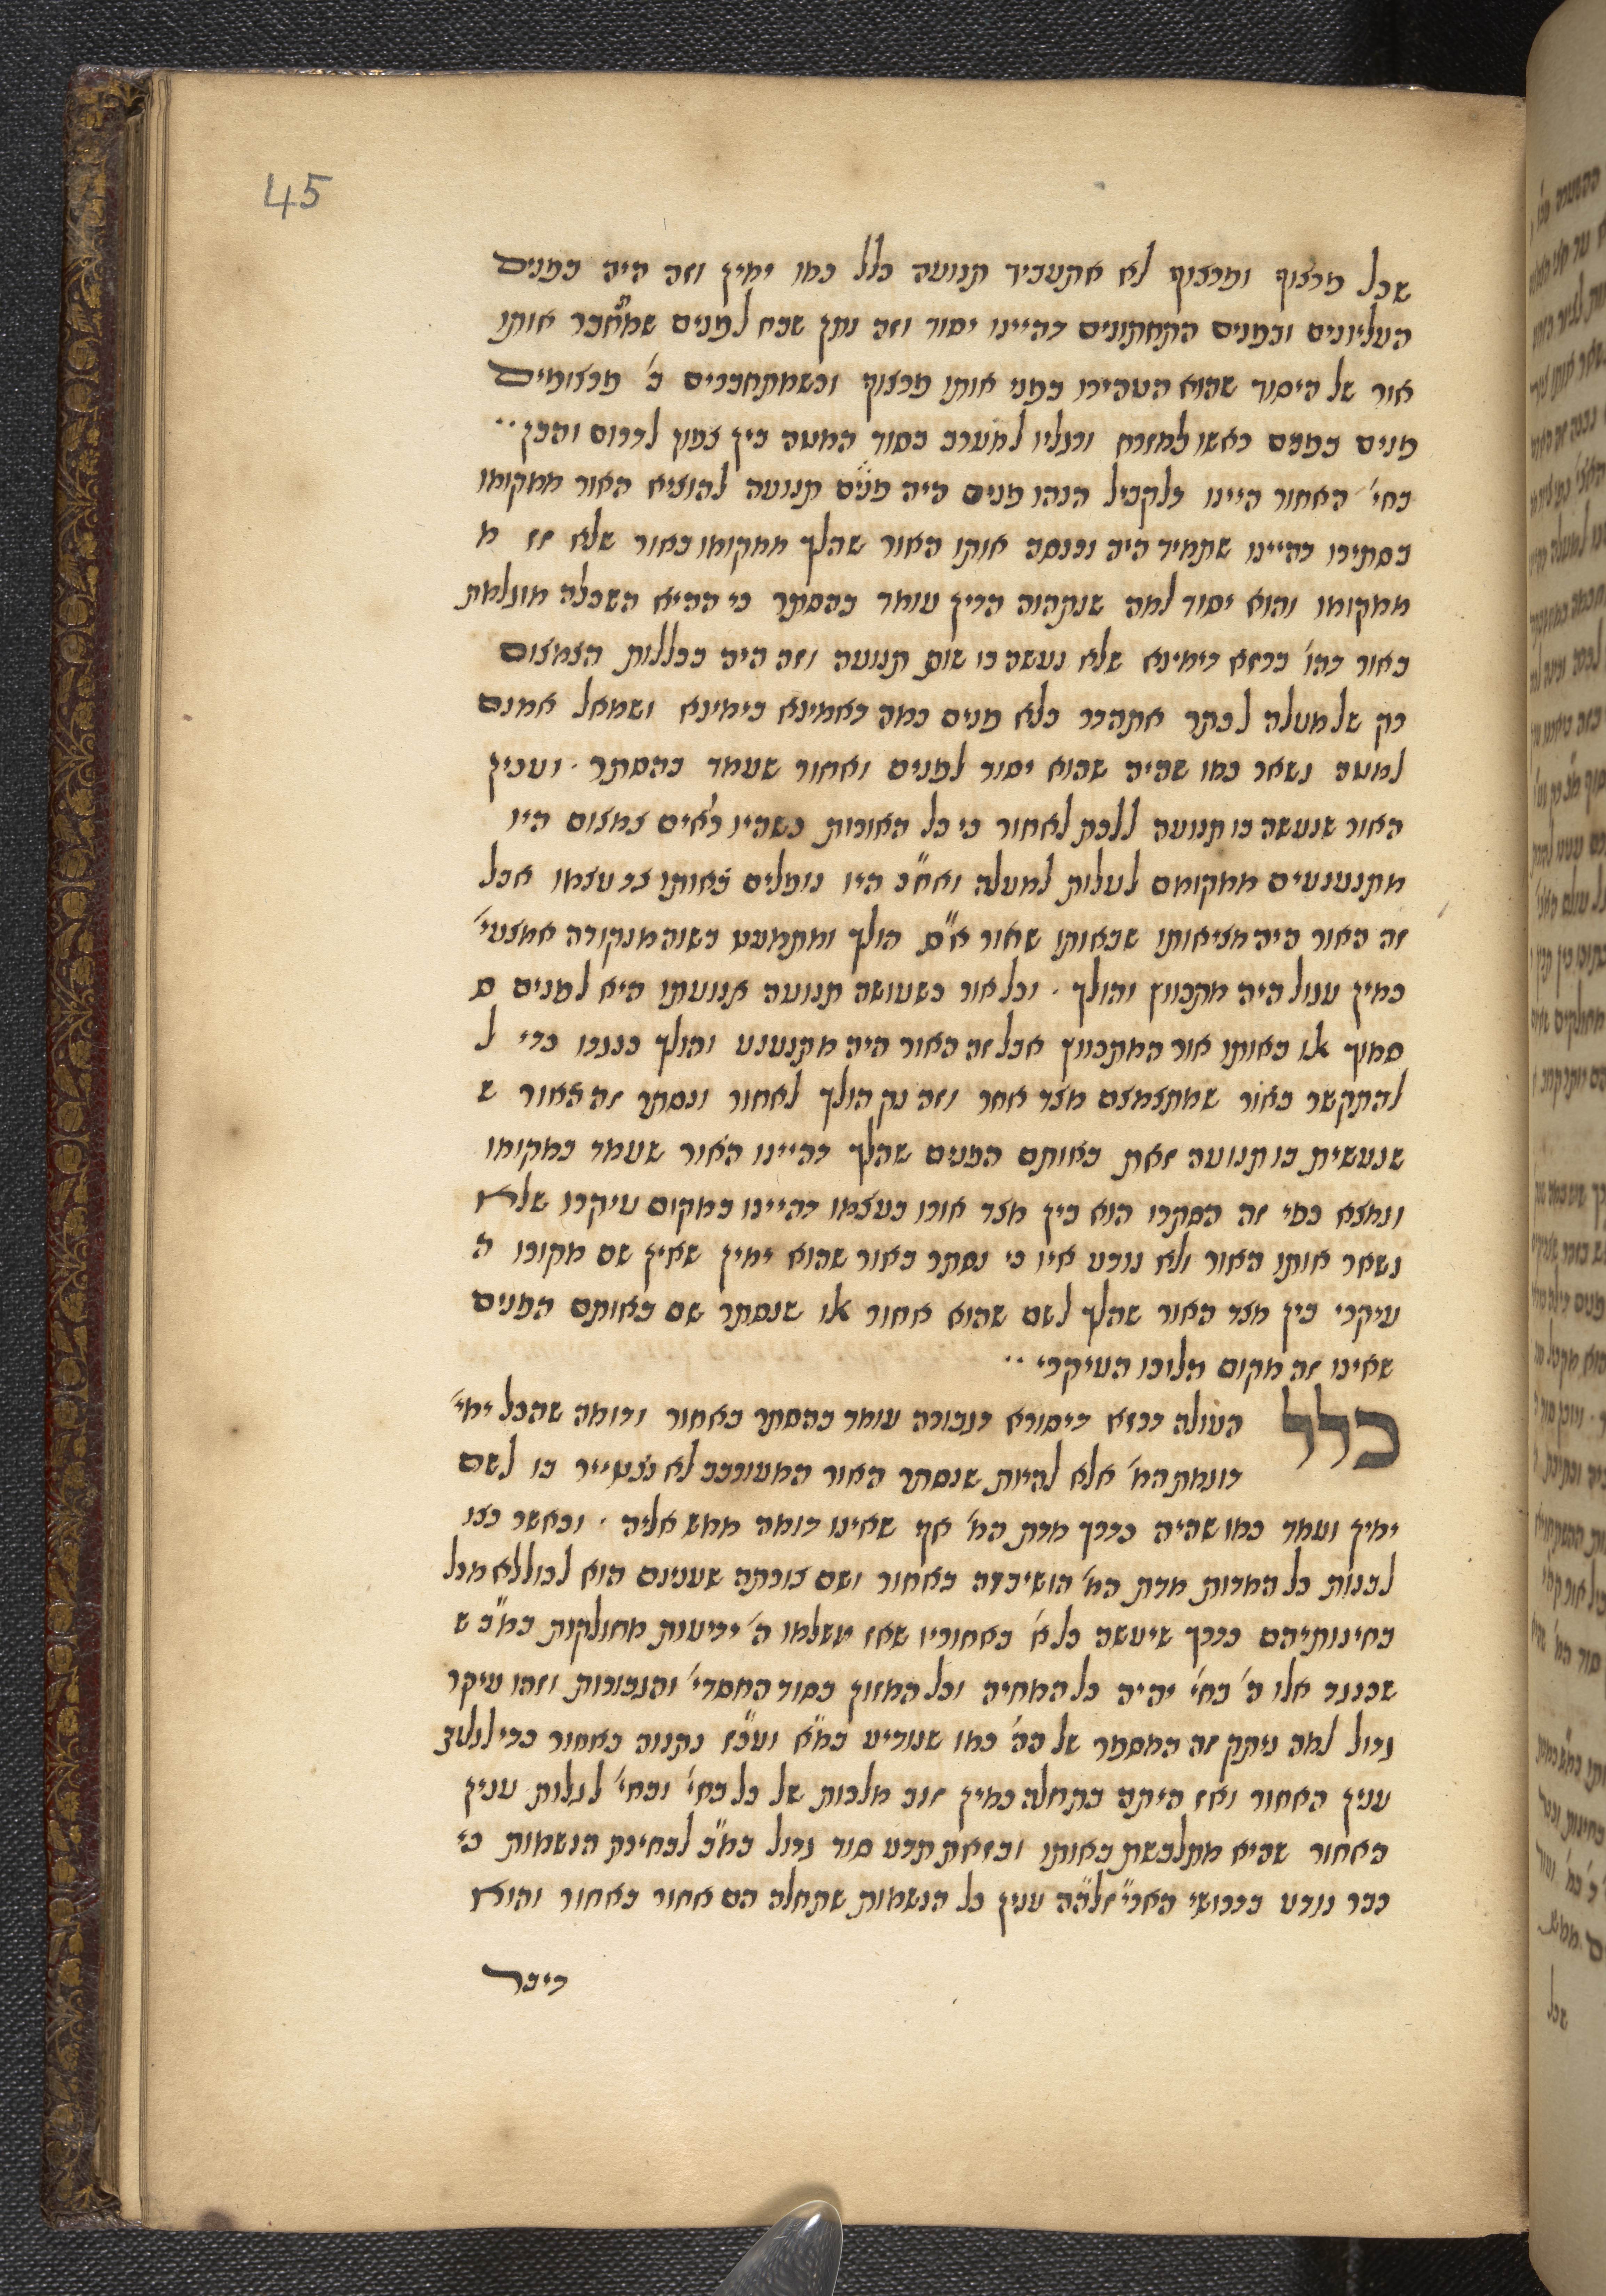 45
שכל פרצוף ופרצוף לא אתעביד תנועה כלל כמו ימין וזה היה בפנים
העליונים ובפנים התחתונים דהיינו יסוד וזה נתן שבח לפנים שמחבר אותו
אור של היסוד שהוא הטהירו בפני אותו פרצוף וכשמתחברים ב' פרצופים
פנים בפנים ראשו למזרח ורגליו למערב בסוד המטה בין צפון לדרום והבן
בחי' האחור היינו דלקביל הנהו פנים היה פנים תנועה להוציא האור ממקומו
בסתירו דהיינו שתמיד היה נכנסה אותו האור שהלך ממקומו באור שלא זז מ
ממקומו והוא יסוד למה שנתהוה הדין עומד בהסתר כי ההיא השכלה מוגלמת
באור דהו' ברזא דימינא שלא נעשה בו שום תנועה וזה היה בכללות הצמצום
רק שלמעלה לכתר אתהדר בלא פנים כמה דאמינא בימינא ושמאל אמנם
למטה נשאר כמו שהיה שהוא יסוד לפנים ואחור שעמד בהסתר ׳ וענין
האור שנעשה בו תנועה ללכת לאחור כי כל האורות כשהיו באים צמצום היו
מתנענעים ממקומם לעלות למעלה ואח"כ היו נופלים באותו צד עצמו אבל
זה האור היה מציאותו שבאותו שאור א"ס הולך ומתמעט בשוה מנקודה אמצעי'
כמין עגול היה מתכווץ והולך ׳ וכל אור כשעושה תנועה תנועתו היא לפנים ס
סמוך או באותו אור המתכווץ אבל זה האור היה מתנענע והולך כנגדו כדי ל
להתקשר באור שמתצמצם מצד אחר וזה נק הולך לאחור ונסתר זה האור ש
שנעשית בו תנועה זאת באותם הפנים שהלך דהיינו האור שעמד במקומו
ונמצא כפי זה הסתרו הוא בין מצד אורו בעצמו דהיינו במקום עיקרו שלא
נשאר אותו האור ולא נודע איו כי נסתר באור שהוא ימין שאין שם מקורו ה
עיקרי בין מצד האור שהלך לשם שהוא אחור או שנסתר שם באותם הפנים
שאינו זה מקום הלוכו העיקרי
כלל העולה דרזא דיסודא דגבורה עומד בהסתר באחור ודומה שהכל ימי'
דוגמת המ' אלא להיות שנסתר האור המעורבב לא נצטייר בו לשם
ימין ועמד כמו שהיה כדרך מדת המ' אף שאינו דומה ממש אליה ׳ וכאשר רצו
לבנות כל המדות מדת המ' הושיבה באחור ושם צורתה שענינם הוא לכוללא מכל
בחינותיהם כדרך שיעשה כל א' באחוריו שאז ישלמו ה' יריעות מחולקות כמ"כ ש
שכנגד אלו ה' בחי' יהיה כל המחיה וכל המזון בסוד החסדי' והגבורות וזהו עיקר
גדול למה ניתק זה המספר של הה' כמו שנודיע במ"א וע"כ נתנוה באחור כדי לגלות
ענין האחור ואז היתה בתחלה כמין זנב מלכות של כל בחי' ובחי' לגלות ענין
האחור שהיא מתלבשת באותו ובזאת תדע סוד גדול כמ"כ לבחינת הנשמות כי
כבר נודע בדרושי האר"י זלה"ה ענין כל הנשמות שתחלה הם אחור באחור והוא
דיבר